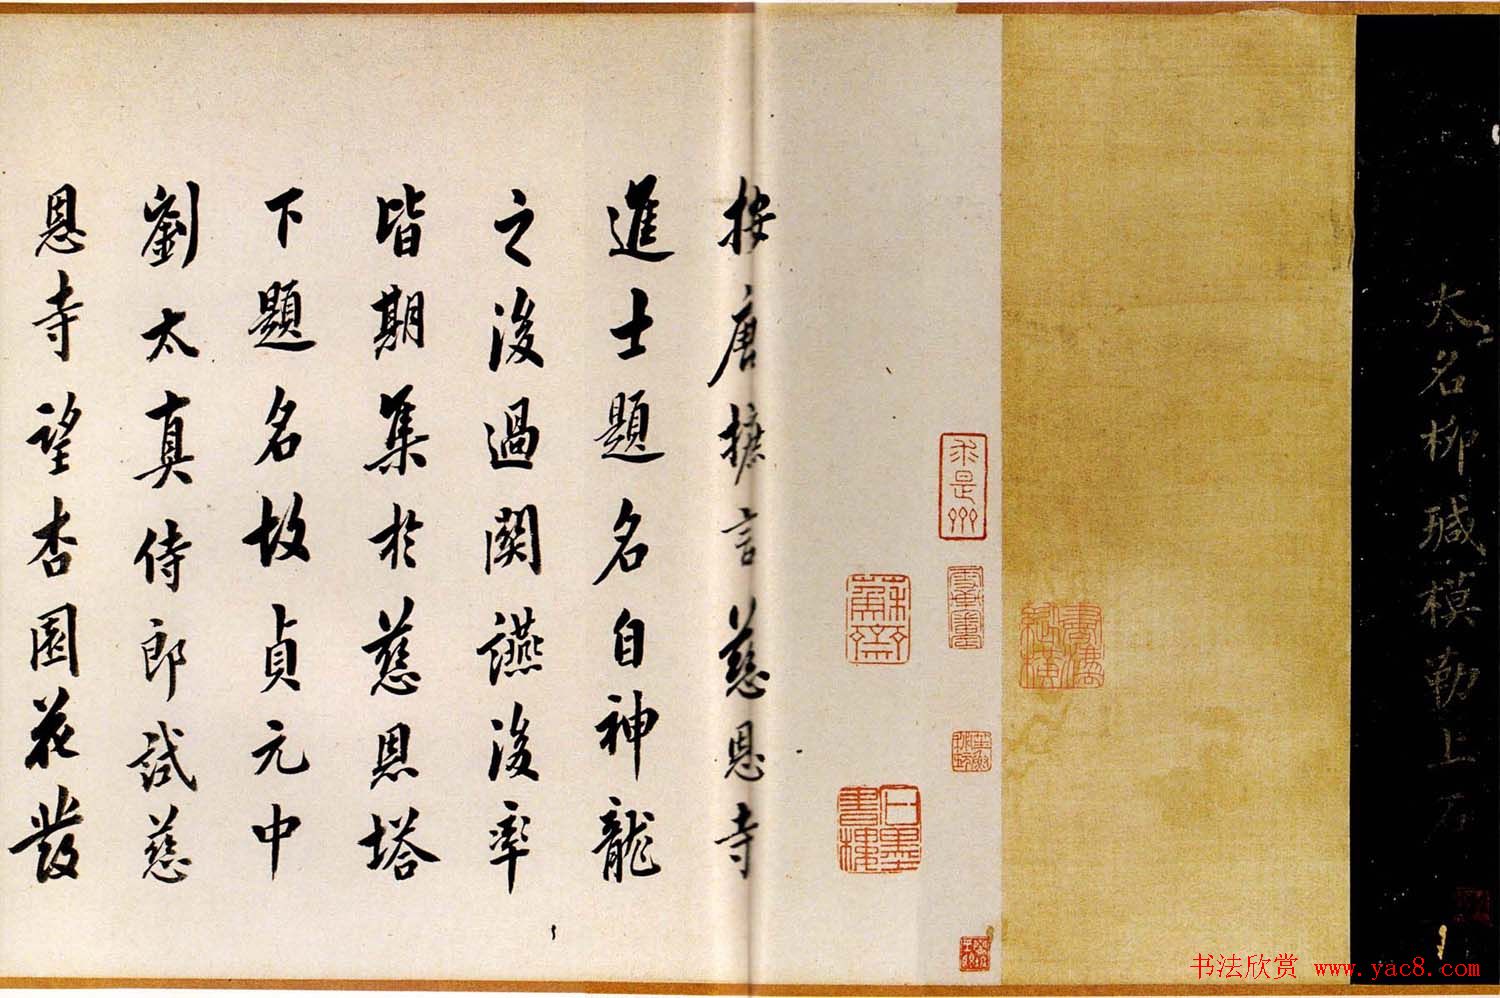 大名柳瑊模勒上石
按唐摭言慈恩寺
進士題名自神龍
之後過關讌後率
皆期集於慈恩塔
下題名故貞元中
劉太真侍郎試慈
恩寺望杏園花發
蘇齋
石墨書樓
书法欣赏 www.yac8.com